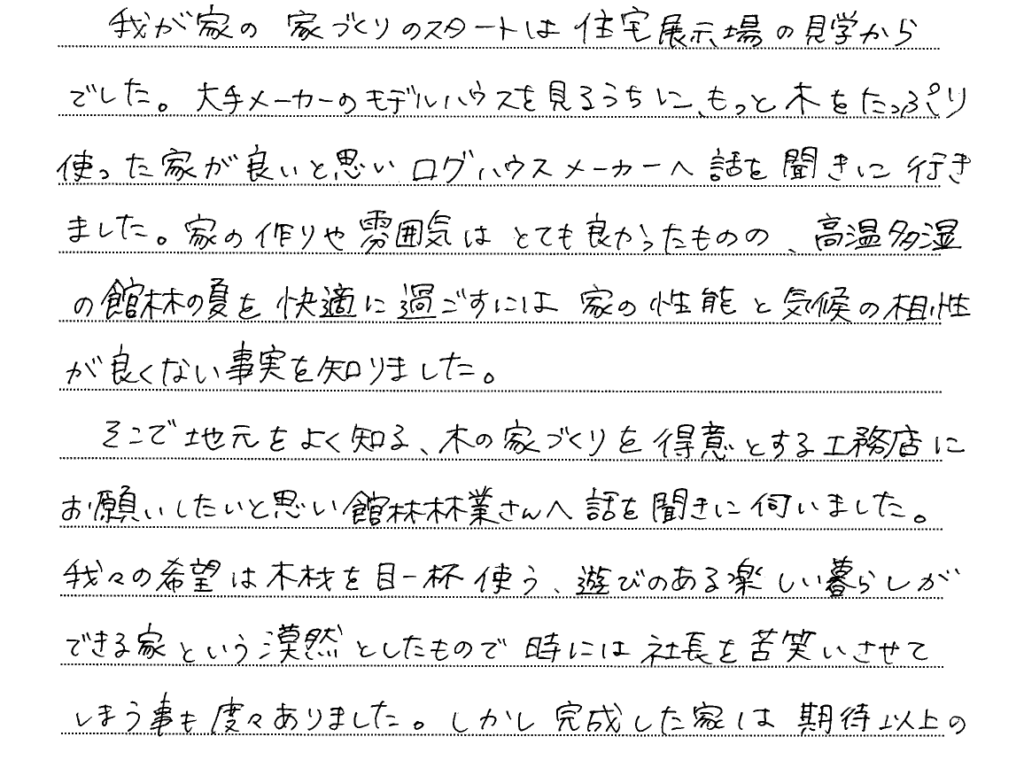 我が家の家づくりのスタートは住宅展示場の見学から
でした。大手メーカーのモデルハウスを見るうちに、もっと木をたっぷり
使った家が良いと思いログハウスメーカーへ話を聞きに行き
ました。家の作りや雰囲気はとても良かったものの、高温多湿
の館林の夏を快適に過ごすには家の性能と気候の相性
が良くない事実を知りました。
そこで地元をよく知る、木の家づくりを得意とする工務店に
お願いしたいと思い館林林業さんへ話を聞きに伺いました。
我々の希望は木材を目一杯使う、遊びのある楽しい暮らしが
できる家という漠然としたもので時には社長を苦笑いさせて
しまう事も度々ありました。しかし完成した家は期待以上の